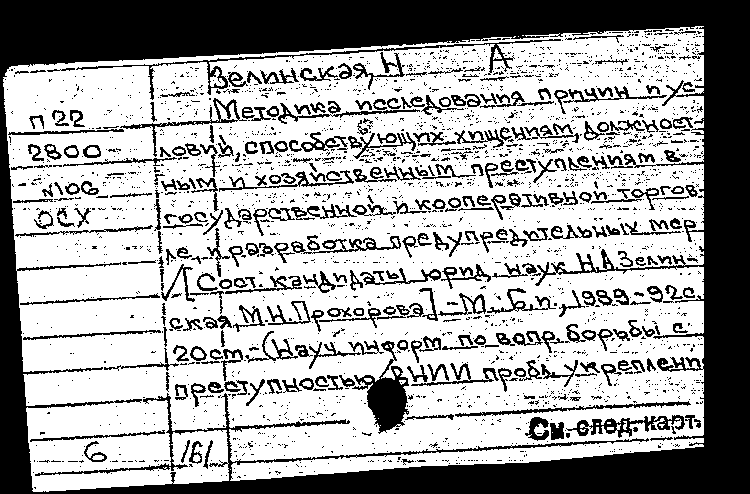 Зелинская, Н А
П 22
Методика исследования причин и ус-
2800
ловий, способствующих хищениям, должност-
№106
ным и хозяйственным преступлениям в
ОСХ
государственной и кооперативной торгов-
ле, и разработка предупредительных мер
/[Сост. кандидаты юрид. наук Н.А.Зелин-
ская, М.Н.Прохорова].-М.:Б.и., 1989.-92с.
20см.-(Науч. информ. по вопр. борьбы с
преступностью/ВНИИ пробл. укрепления
См. след. карт.
6 /6/